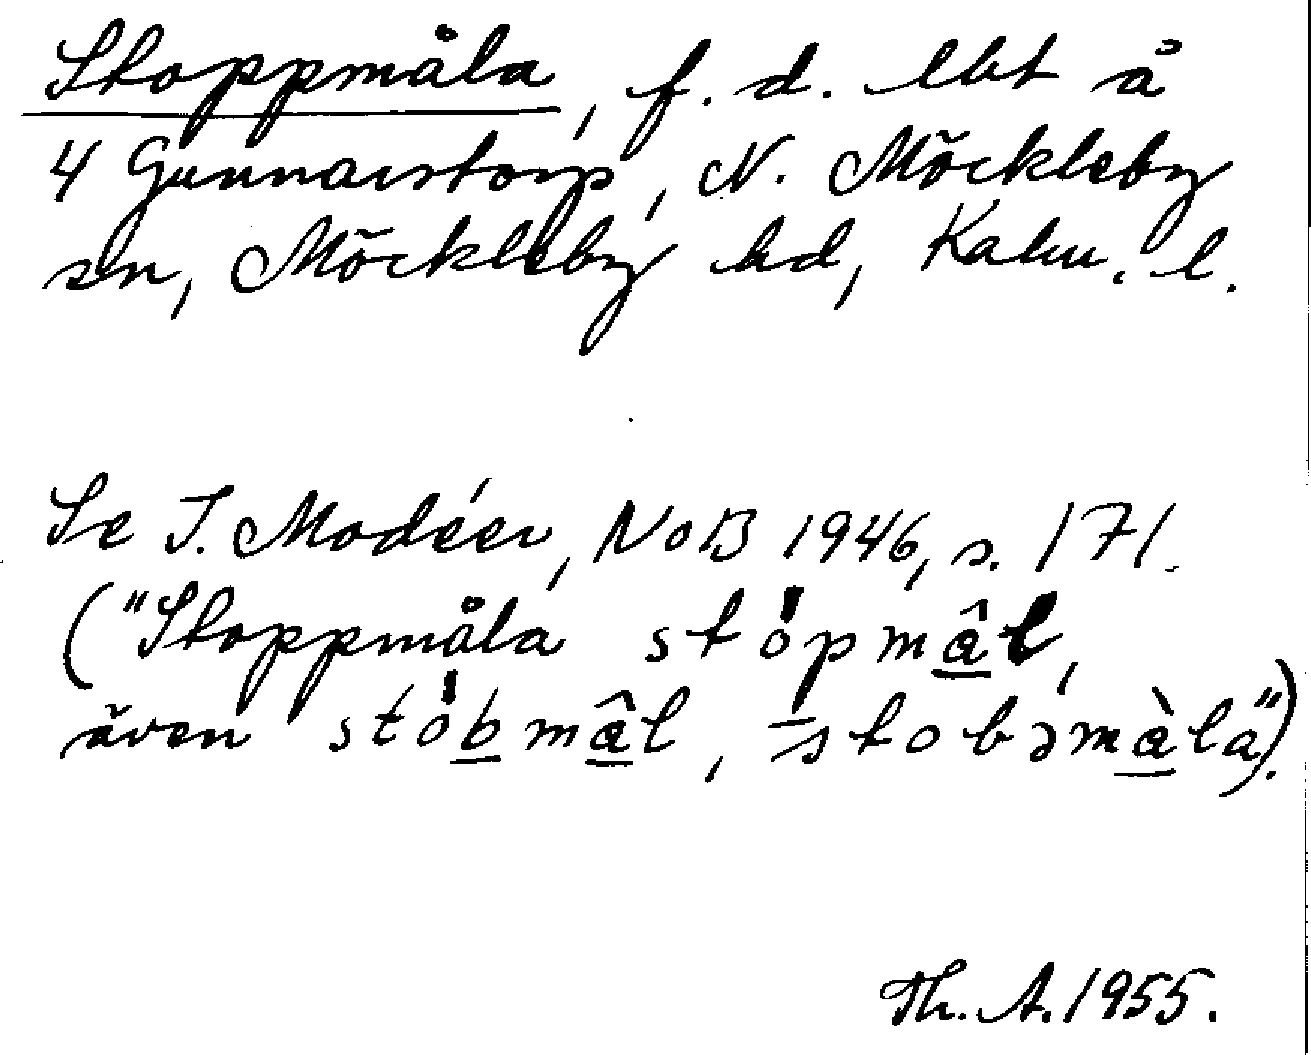 Stoppmåla, f. d. lht å
4 Gunnarstorp, N. Möckleby
sn, Möckleby hd, Kalm. l.
Se I. Modéer, NoB 1946, s. 171.
("Stoppmåla stópmâl,
även stóbmâl, -stobəmàla").
Th. A. 1955.